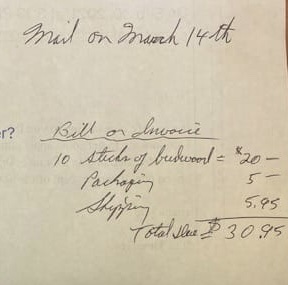 Mail on March 14th
er? Bill or Invoice
10 sticks of budwood = $20 —
Packaging 5 —
Shipping 5.95
Total due $ 30.95